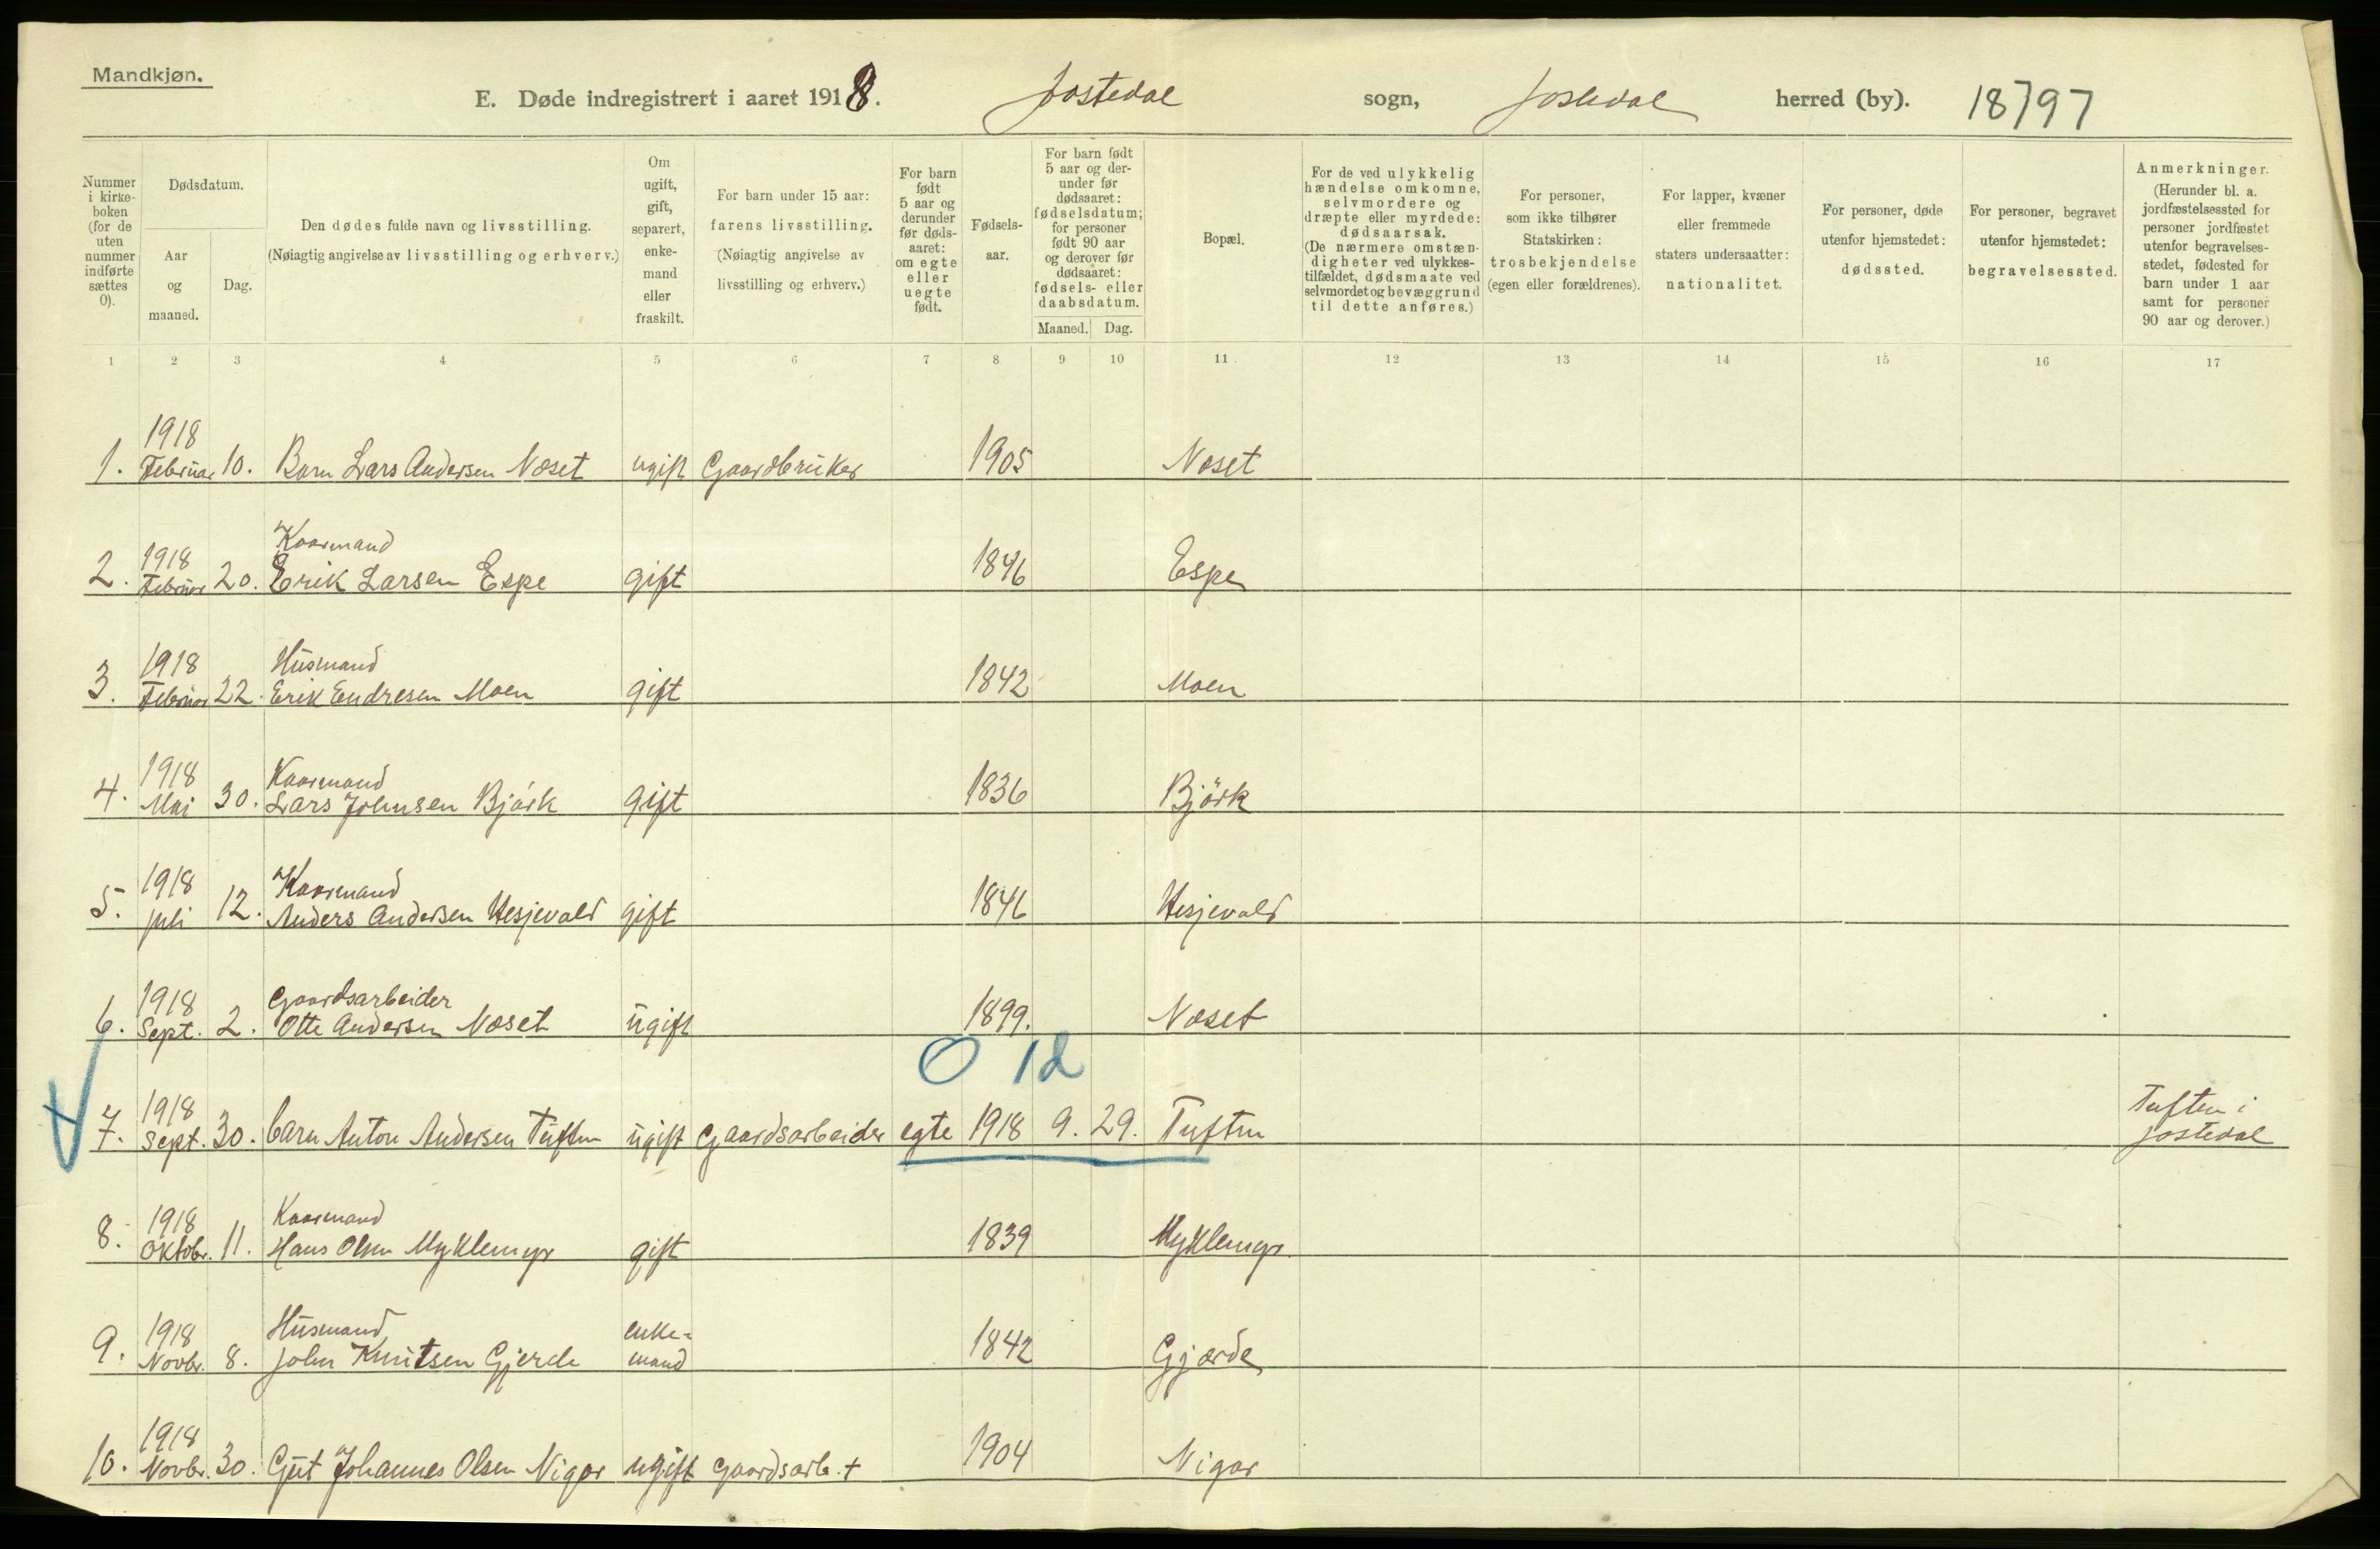 Mandkjøn.
E. Døde indregistrert i aaret 1918. Jostedal sogn, Jostedal herred (by). 18797
Nummer i kirkeboken (for de uten nummer indførte sættes 0).
Dødsdatum.
Aar og maaned.
Dag.
Den dødes fulde navn og livsstilling.
(Nøiagtig angivelse av livsstilling og erhverv.)
Om ugift, gift, separert, enkemand eller fraskilt.
For barn under 15 aar: farens livsstilling.
(Nøiagtig angivelse av livsstilling og erhverv.)
For barn født 5 aar og derunder før dødsaaret: om egte eller uegte født.
Fødselsaar.
For barn født 5 aar og derunder før dødsaaret: fødselsdatum; for personer født 90 aar og derover før dødsaaret: fødsels- eller daabsdatum.
Maaned. Dag.
Bopæl.
For de ved ulykkelig hændelse omkomne, selvmordere og dræpte eller myrdede: dødsaarsak.
(De nærmere omstændigheter ved ulykkestilfældet, dødsmaate ved selvmordet og bevæggrund til dette anføres.)
For personer, som ikke tilhører Statskirken: trosbekjendelse (egen eller forældrenes).
For lapper, kvæner eller fremmede staters undersaatter: nationalitet.
For personer, døde utenfor hjemstedet: dødssted.
For personer, begravet utenfor hjemstedet: begravelsessted.
Anmerkninger.
(Herunder bl. a. jordfæstelsessted for personer jordfæstet utenfor begravelsesstedet, fødested for barn under 1 aar samt for personer 90 aar og derover.)
1 2 3 4 5 6 7 8 9 10 11 12 13 14 15 16 17
1918
1. Februar 10. Barn Lars Andersen Næset ugift Gaardbruker 1905 Næset
Kaarmand
2. 1918 Februar 20. Erik Larsen Espe gift 1846 Espe
1918 Husmand
3. Februar 22. Erik Endresen Moen gift 1842 Moen
1918 Kaarmand
4. Mai 30. Lars Johnsen Bjørk gift 1836 Björk
1918 Kaarmand
5. juli 12. Anders Andersen Hesjevold gift 1846 Hesjevold
1918 Gaardsarbeider
6. Sept. 2. Otte Andersen Næset ugift 1899. Næset
0 12
1918 Tuften i
7. Sept. 30. barn Anton Andersen Tuften ugift Gaardsarbeider egte 1918 9. 29. Tuften Jostedal
1918 Kaarmand
8. Oktobr. 11. Hans Olsen Myklemyr gift 1839 Myklemyr
1918 Husmand enke-
9. Novbr. 8. John Knutsen Gjerde mand 1842 Gjærde
1918
10. Novbr. 30. Gut Johannes Olsen Nigar ugift gaardsarb. + 1904 Nigar